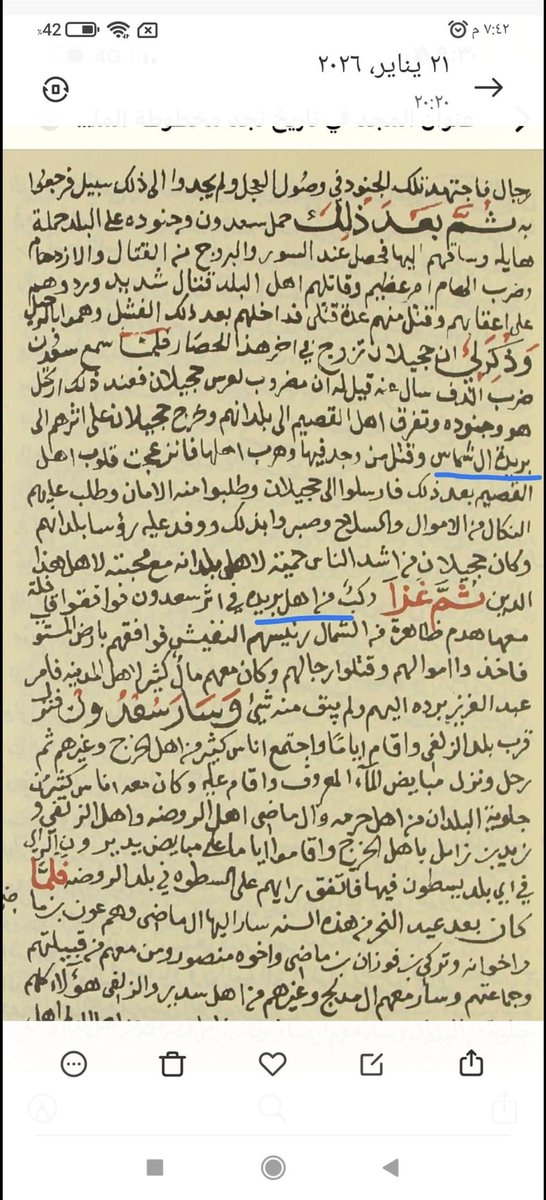 ٧:٤٢ م
٪42
٢١ يناير، ٢٠٢٦
٢٠:٢٠
رجال فاجتهدت تلك الجنود في وصول العجل ولم يجدوا الى ذلك سبيل فرجعوا
به ثُمَّ بَعْدَ ذَلِكَ حمل سعدون وجنوده على البلد حملة
هايله وساقهم اليها فحصل عند السور والبروج من القتال والازدحام
وضرب الهام امر عظيم وقاتلهم اهل البلد قتال شديد وردوهم
على اعقابهم وقتل منهم عدة قتلى فداخلهم بعد ذلك الفشل وهموا بالرحيل
وَذُكِرَ لِي ان حجيلان تزوج في اخر هذا الحصار فلمّا سمع سعدون
ضرب الدف سال عنه قيل له ان مضروب لعرس حجيلان فعند ذلك ارتحل
هو وجنوده وتفرق اهل القصيم الى بلدانهم وخرج حجيلان على اثرهم الى
بريدة ال شماس وقتل من وجد فيها وهرب اهلها فانزعجت قلوب اهل
القصيم بعد ذلك فارسلوا الى حجيلان وطلبوا منه الامان وطلب عليهم
النكال من الاموال والسلاح وصبروا بذلك ووفد عليه رؤسا بلدانهم
وكان حجيلان من اشد الناس حمية لاهل بلدانه مع محبته لاهل هذا
الدين ثُمَّ غَزَا ركب من اهل بريده في اثر سعدون فوافقوا قافلة
معها هدم ظاهرة من الشمال رئيسهم النفيش فوافقهم بارض المستو
فاخذوا اموالهم وقتلوا رجالهم وكان معهم مال كثير لاهل المدينه فامر
عبد العزيز برده اليهم ولم يبق منه شيئ وَسَارَ سَعْدُونْ فنزل
قرب بلد الزلفي واقام اياما واجتمع اناس كثير من اهل الخرج وغيرهم ثم
رحل ونزل مبايض المآء المعروف واقام عليه وكان معه اناس كثيرين
جلوية البلدان من اهل حرمه وال ماضي اهل الروضه واهل الزلفي و
زيد بن زامل باهل الخرج واقاموا اياما على مبايض يديرون الراي
في اي بلد يسطون فيها فاتفق رايهم على السطوه في بلد الروضه فَلَمَّا
كان بعد عيد النحر من هذه السنه سار اليها ال ماضي وهم عون بن ما
واخوانه وتركي بن فوزان بن ماضي واخوه منصور ومن معهم من قبيلتهم
وجماعتهم وسار معهم ال مدلج وغيرهم من اهل سدير والزلفي هؤلاء كلهم